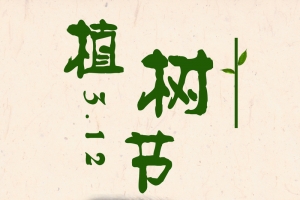 植树节
3.12